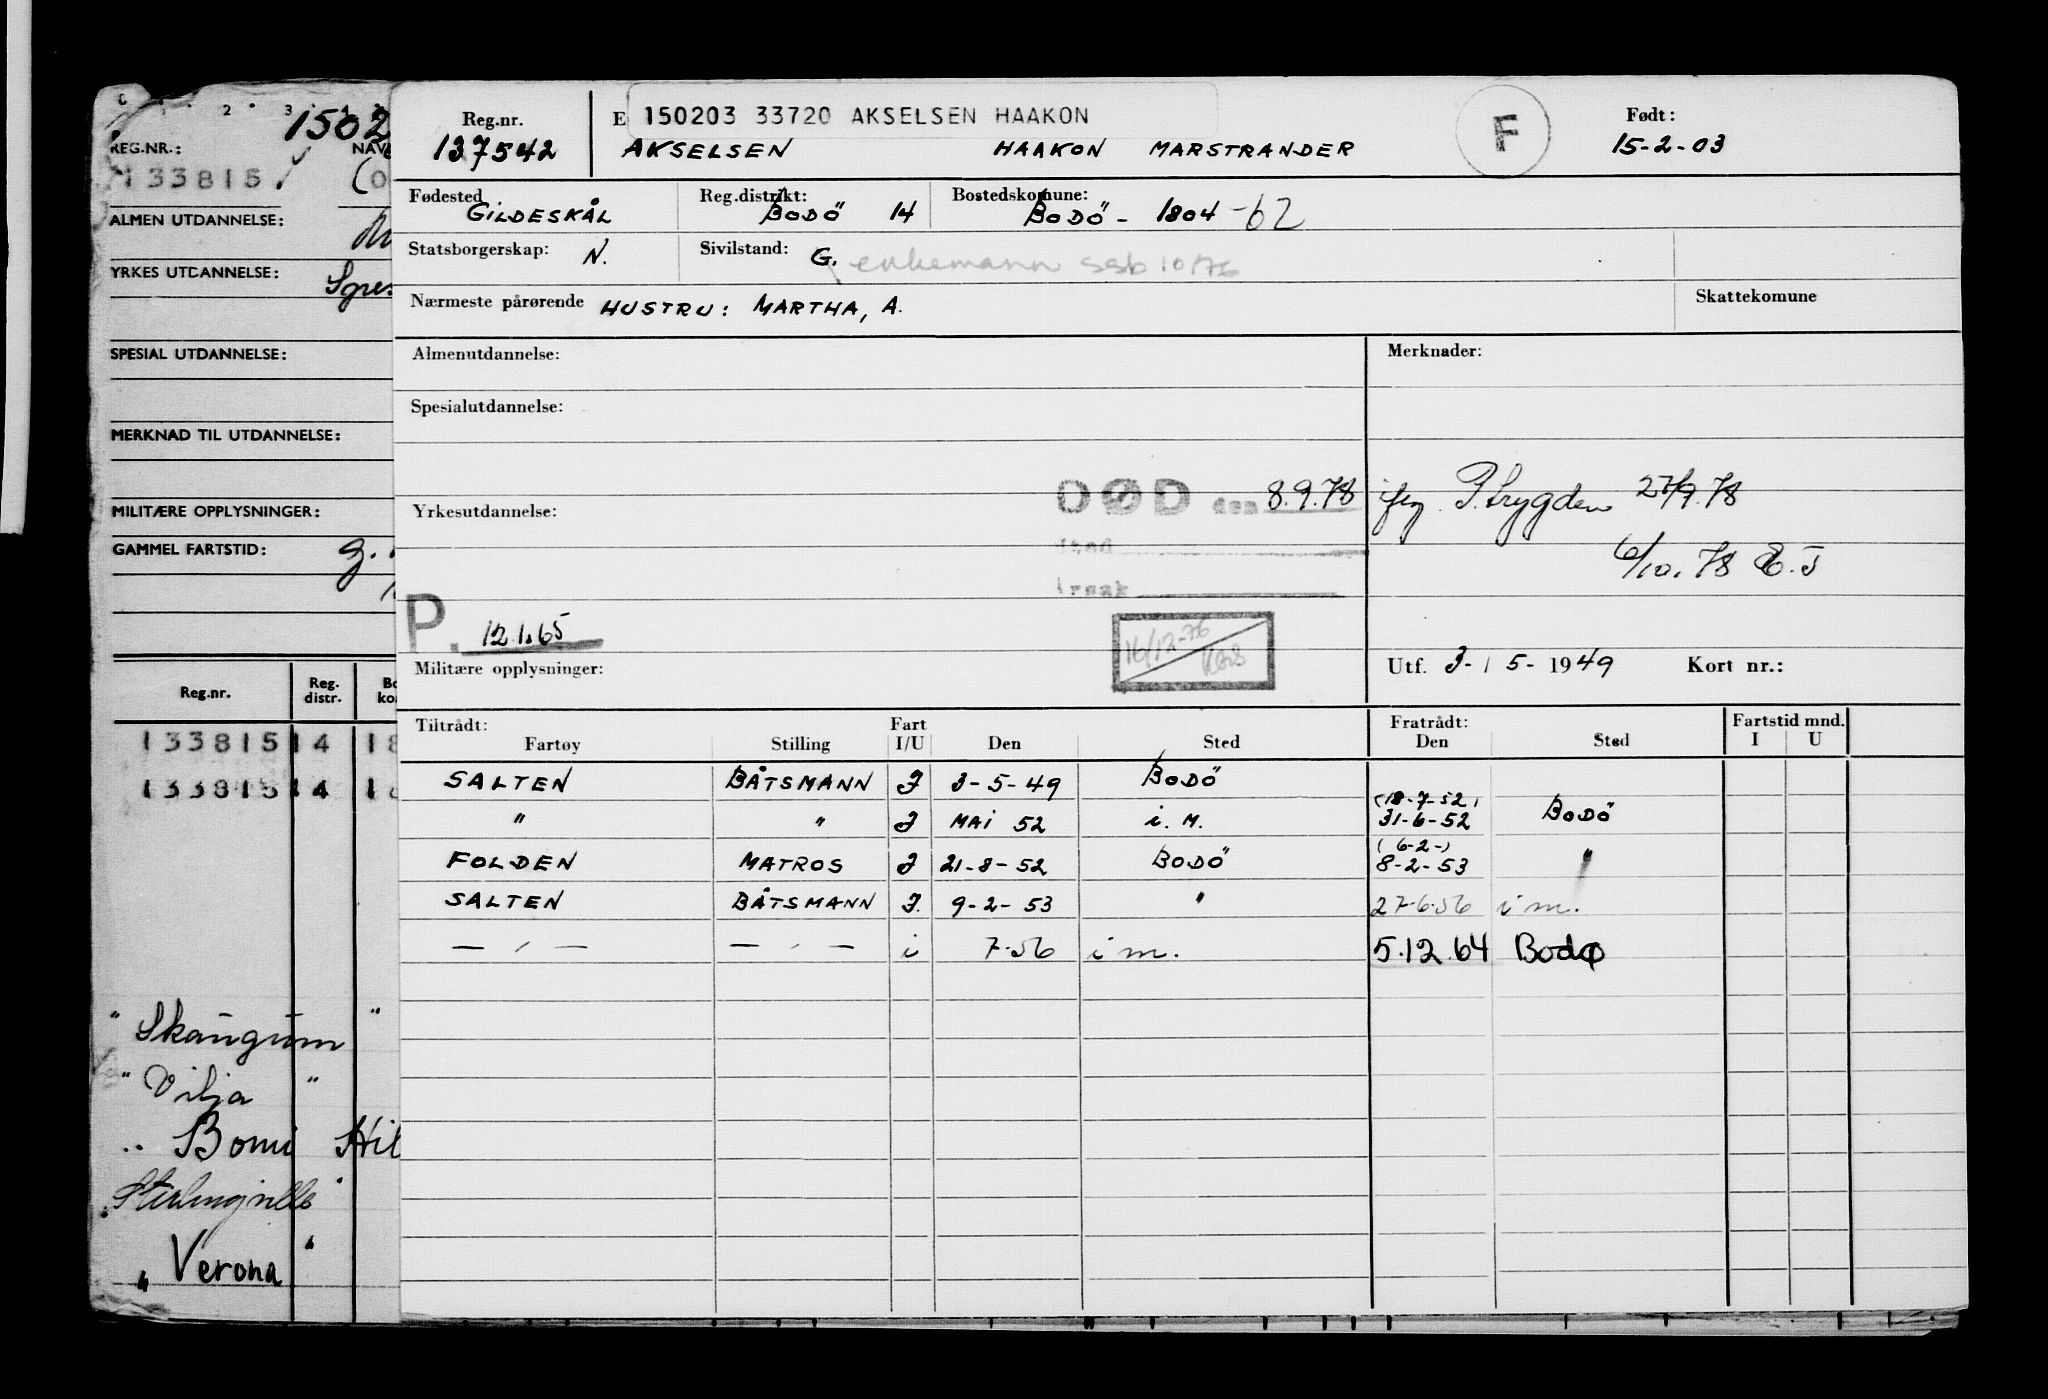 1502
REG.NR.: NAV
133815 ✓ (o
ALMEN UTDANNELSE:
YRKES UTDANNELSE:
SPESIAL UTDANNELSE:
MERKNAD TIL UTDANNELSE:
MILITÆRE OPPLYSNINGER:
GAMMEL FARTSTID:
Reg.nr. Reg. distr.
133815 14 18
133815 14
" Skaugum "
" Vilja "
" Bomi Hil
" Stirlingville "
" Verona "
150203 33720 AKSELSEN HAAKON
Reg.nr. E F Født:
137542 AKSELSEN HAAKON MARSTRANDER 15-2-03
Fødested Reg.distrikt: Bostedskomune:
GILDESKÅL BODÖ 14 BODÖ - 1804 -62
Statsborgerskap: N. Sivilstand: G. enkemann ssb 10/76
Nærmeste pårørende HUSTRU: MARTHA, A. Skattekomune
Almenutdannelse: Merknader:
Spesialutdannelse:
DØD den 8.9.78 jfr. P.trygden 27/9.78
Yrkesutdannelse:
Sted 6/10.78 E.J
Årsak
P. 12.1.65
16/12-76
Militære opplysninger: Utf. 3-/5-1949 Kort nr.:
Tiltrådt: Fart Fratrådt: Fartstid mnd.
Fartøy Stilling I/U Den Sted Den Sted I U
SALTEN BÅTSMANN J 3-5-49 BODÖ
(18-7-52)
" " J MAI 52 i. M. 31-6-52 BODÖ
(6-2-)
FOLDEN MATROS J 21-8-52 BODÖ 8-2-53 "
SALTEN BÅTSMANN J. 9-2-53 " 27-6-56 i m.
— " — — " — i 7-56 i m. 5.12.64 Bodø